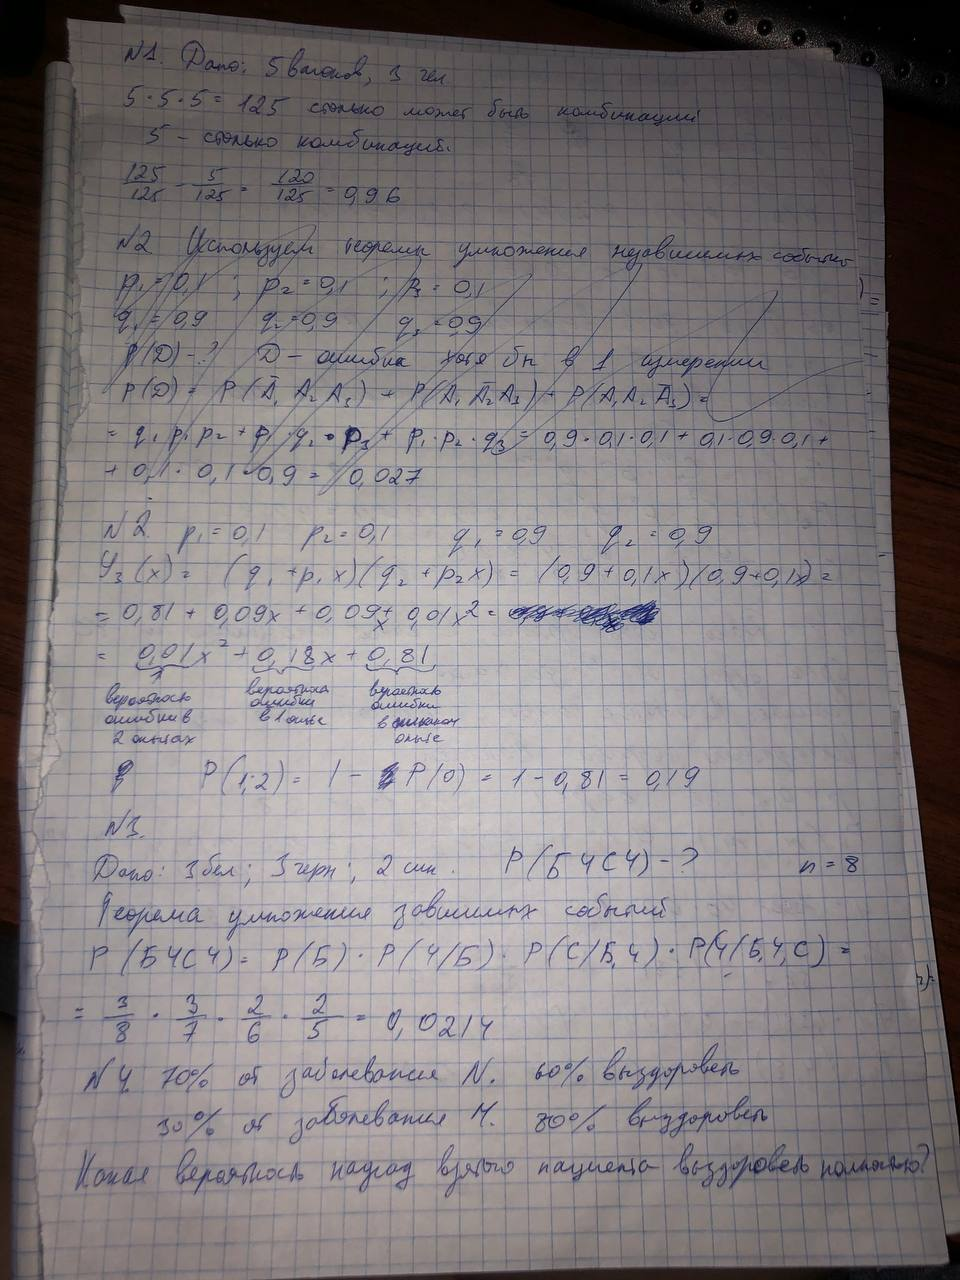 №1. Дано: 5 вагонов, 3 чел
5·5·5 = 125 столько может быть комбинаций
5 - столько комбинаций.
125/125 - 5/125 = 120/125 = 0,96
№2 Используем теоремы умножения независимых событий
p₁ = 0,1 ; p₂ = 0,1 ; p₃ = 0,1
q₁ = 0,9 q₂ = 0,9 q₃ = 0,9
P(D) - ? D - ошибка хотя бы в 1 измерении
P(D) = P(Ā₁ A₂ A₃) + P(A₁ Ā₂ A₃) + P(A₁ A₂ Ā₃) =
= q₁ p₁ p₂ + p₁ q₂ · p₃ + p₁ · p₂ · q₃ = 0,9 · 0,1 · 0,1 + 0,1 · 0,9 · 0,1 +
+ 0,1 · 0,1 · 0,9 = 0,027
№2. p₁ = 0,1 p₂ = 0,1 q₁ = 0,9 q₂ = 0,9
φ₃(x) = (q₁ + p₁x)(q₂ + p₂x) = (0,9 + 0,1x)(0,9 + 0,1x) =
= 0,81 + 0,09x + 0,09x + 0,01x² =
= 0,01x² + 0,18x + 0,81
вероятность вероятность вероятность
ошибки в ошибки ошибки
2 опытах в 1 опыте в никаком
опыте
P(1,2) = 1 - P(0) = 1 - 0,81 = 0,19
№3.
Дано: 3 бел; 3 черн; 2 син. P(БЧСЧ) - ? n = 8
Теорема умножения зависимых событий
P(БЧСЧ) = P(Б) · P(Ч/Б) · P(С/Б,Ч) · P(Ч/Б,Ч,С) =
= 3/8 · 3/7 · 2/6 · 2/5 = 0,0214
№4. 70% от заболевания N. 60% выздороветь
30% от заболевания М. 80% выздороветь
Какая вероятность наугад взятого пациента выздороветь полностью?